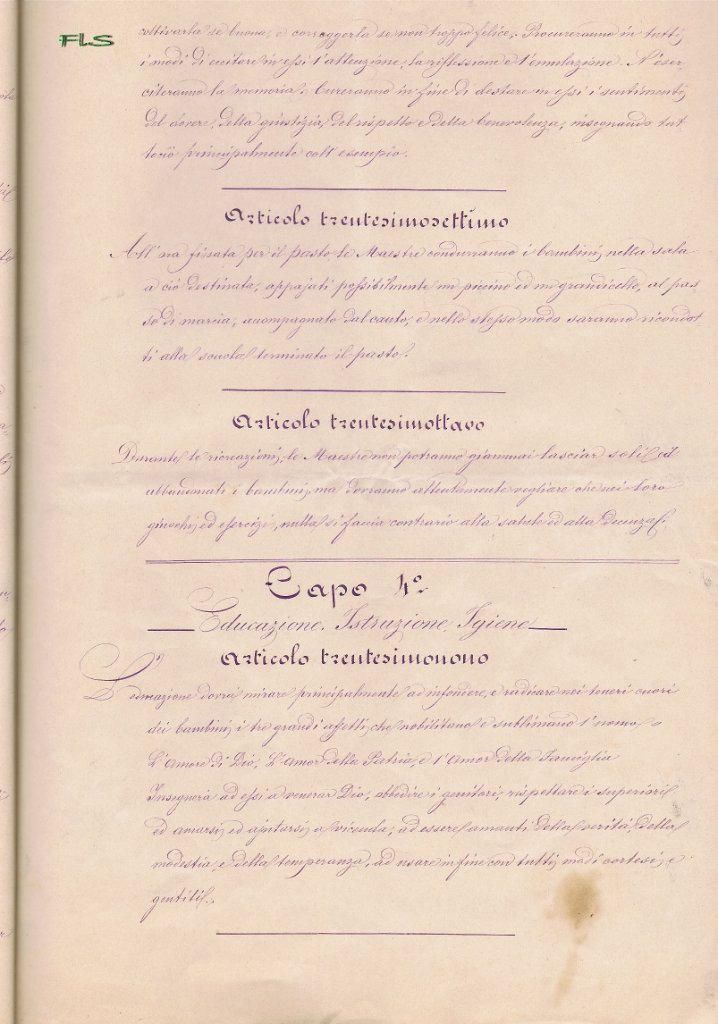 FLS
coltivarla se buona, e correggerla se non troppo felice. Procureranno in tutti
i modi di eccitare in essi l'attenzione, la riflessione e l'emulazione. N'eser-
citeranno la memoria. Cureranno in fine di destare in essi i sentimenti
del dovere, della giustizia, del rispetto e della benevolenza, insegnando tut
tociò principalmente coll'esempio.
Articolo trentesimosettimo
All'ora fissata per il pasto le Maestre condurranno i bambini nella sala
a ciò destinata, appajati possibilmente un piccino ed un grandicello, al pas
so di marcia, accompagnato dal canto, e nello stesso modo saranno ricondot
ti alla scuola terminato il pasto.
Articolo trentesimottavo
Durante le ricreazioni, le Maestre non potranno giammai lasciar soli ed
abbandonati i bambini, ma dovranno attentamente vegliare che nei loro
giuochi, ed esercizi, nulla si faccia contrario alla salute ed alla decenza.
Capo 4°.
Educazione. Istruzione. Igiene
Articolo trentesimonono
L'educazione dovrà mirare principalmente ad infondere, e radicare nei teneri cuori
dei bambini i tre grandi affetti, che nobilitano e sublimano l'uomo
L'Amore di Dio, L'Amor della Patria, e l'Amor della Famiglia
Insegnerà ad essi a venerar Dio, obbedire i genitori, rispettare i superiori
ed amarsi ed ajutarsi a vicenda; ad essere amanti della verità, della
modestia, e della temperanza, ad usare in fine con tutti modi cortesi, e
gentili.